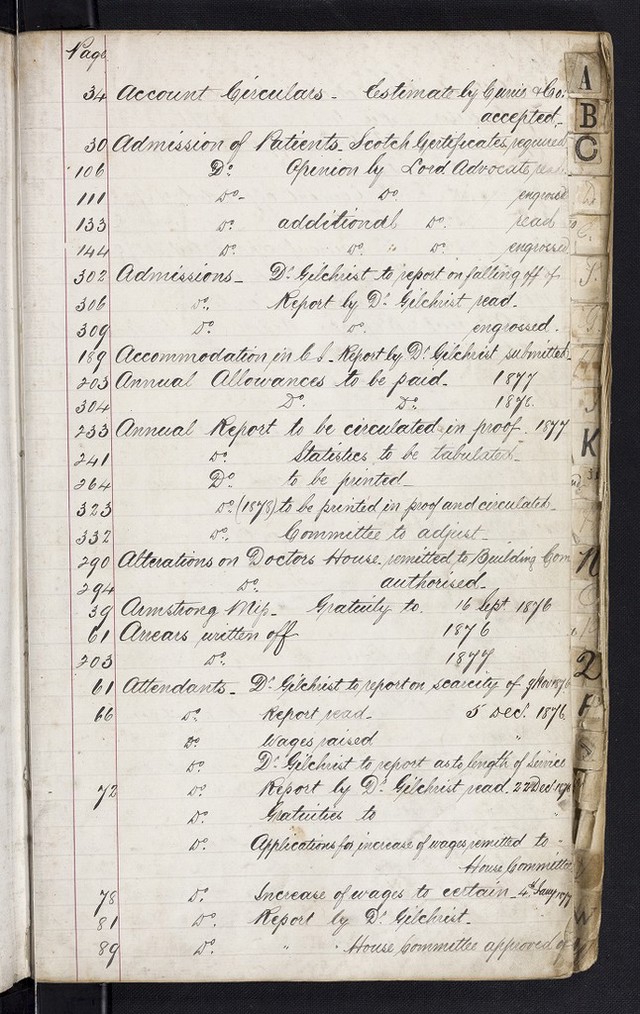 Page
34 Account Circulars - Estimate by & Co:
accepted -
30 Admission of Patients - Scotch Certificates required
106 Do. Opinion by Lord Advocate
111 Do - Do. engrossed
133 Do. additional Do. read
144 Do. Do. Do. engrossed
302 Admissions - Dr. Gilchrist to report on falling off of
306 Do. Report by Dr. Gilchrist read -
309 Do. Do. engrossed.
189 Accommodation in Report by Dr. Gilchrist submitted -
203 Annual Allowances to be paid - 1877
304 Do. Do. 1878.
233 Annual Report to be circulated in proof - 1877
241 Do. Statistics to be tabulated -
264 Do. to be printed -
323 Do. (1878) to be printed in proof and circulated -
332 Do. Committee to adjust -
290 Alterations on Doctors House remitted to Building Com
294 Do. authorised -
39 Armstrong Miss - Gratuity to. 16 Sept. 1876
61 Arrears written off 1876
203 Do. 1877
61 Attendants - Dr. Gilchrist to report on scarcity of 9 Nov 1876
66 Do. Report read - 5 Dec. 1876.
Do. Wages raised "
Do. Dr. Gilchrist to report as to length of Service
72 Do. Report by Dr. Gilchrist read. 22 Dec 1876
Do. Gratuities to "
Do. Applications for increase of wages remitted to -
House Committee
78 Do. Increase of wages to certain - 4th Jany 1877
81 Do. Report by Dr. Gilchrist -
89 Do. " " House Committee approved of
A
B
C
K
W